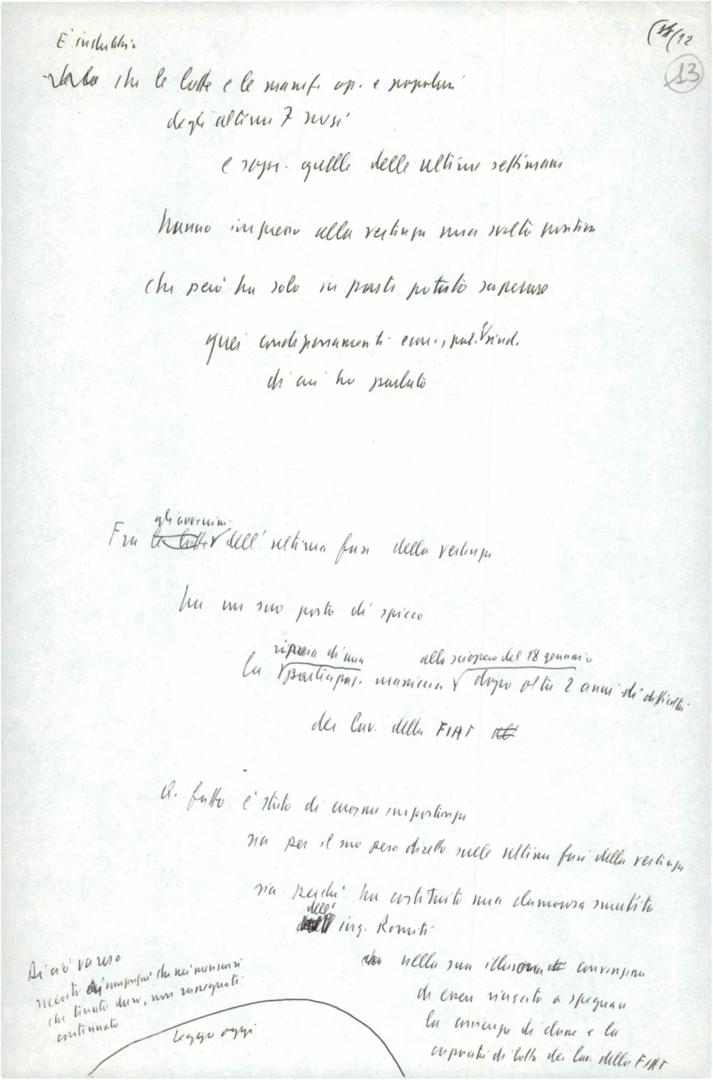 13
E' indubbio
che le lotte e le manif. op. e popolari
degli ultimi 7 mesi
e sopr. quelle delle ultime settimane
hanno impresso alla vertenza una svolta positiva
che però ha solo in parte potuto superare
quei condizionamenti econ., pol. e sind.
di cui ho parlato
gli avvenim.
Fra le lotte dell'ultima fase della vertenza
ha un suo posto di spicco
ripresa di una allo sciopero del 18 gennaio
la partecipaz. massiccia dopo oltre 2 anni di difficoltà
dei lav. della FIAT
Q. fatto è stato di enorme importanza
sia per il suo peso diretto sulle ultime fasi della vertenza
sia perché ha costituito una clamorosa smentita
dell'
ing. Romiti
nella sua convinzione
di essere riuscito a spegnere
la coscienza di classe e la
capacità di lotta dei lav. della FIAT
Di ciò va reso
merito ai compagni che nei mesi scorsi
che tenuto duro, non rassegnati
continuato
Leggo oggi